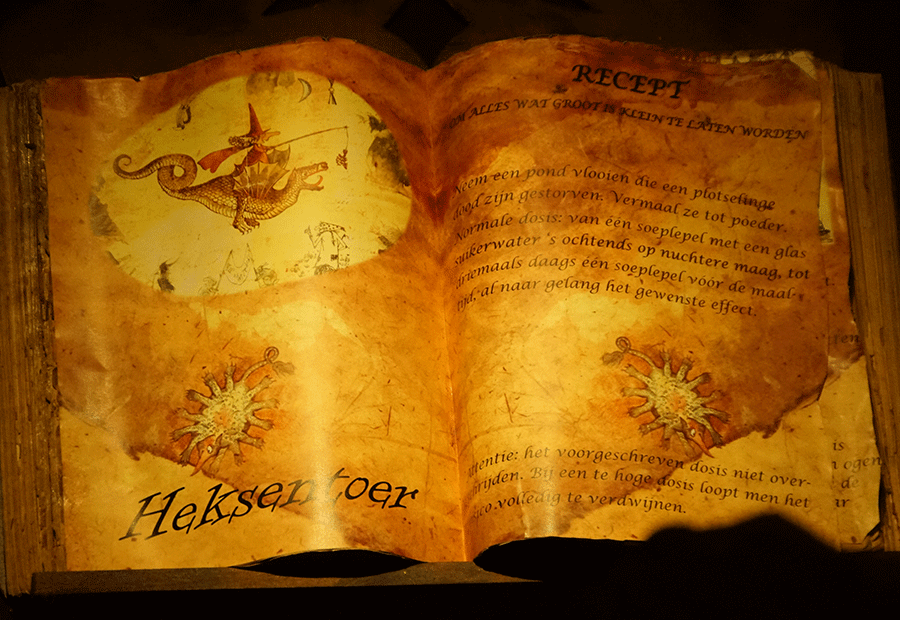 Heksentoer
RECEPT
OM ALLES WAT GROOT IS KLEIN TE LATEN WORDEN
Neem een pond vlooien die een plotselinge
dood zijn gestorven. Vermaal ze tot poeder.
Normale dosis: van één soeplepel met een glas
suikerwater 's ochtends op nuchtere maag, tot
driemaals daags één soeplepel vóór de maal-
tijd, al naar gelang het gewenste effect.
Attentie: het voorgeschreven dosis niet over-
rijden. Bij een te hoge dosis loopt men het
volledig te verdwijnen.
is
ogen
de